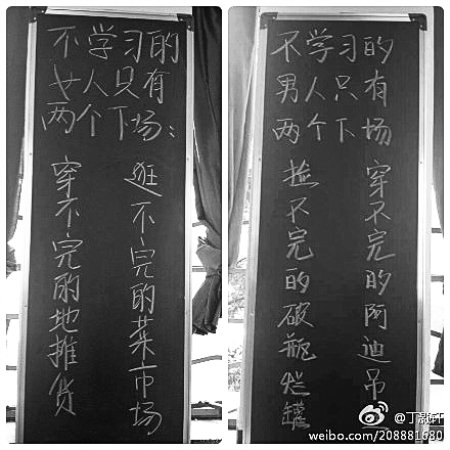 不学习的
女人只有
两个下场：
逛不完的菜市场
穿不完的地摊货
不学习的
男人只有
两个下场
穿不完的阿迪吊
捡不完的破瓶烂罐
weibo.com/208881680